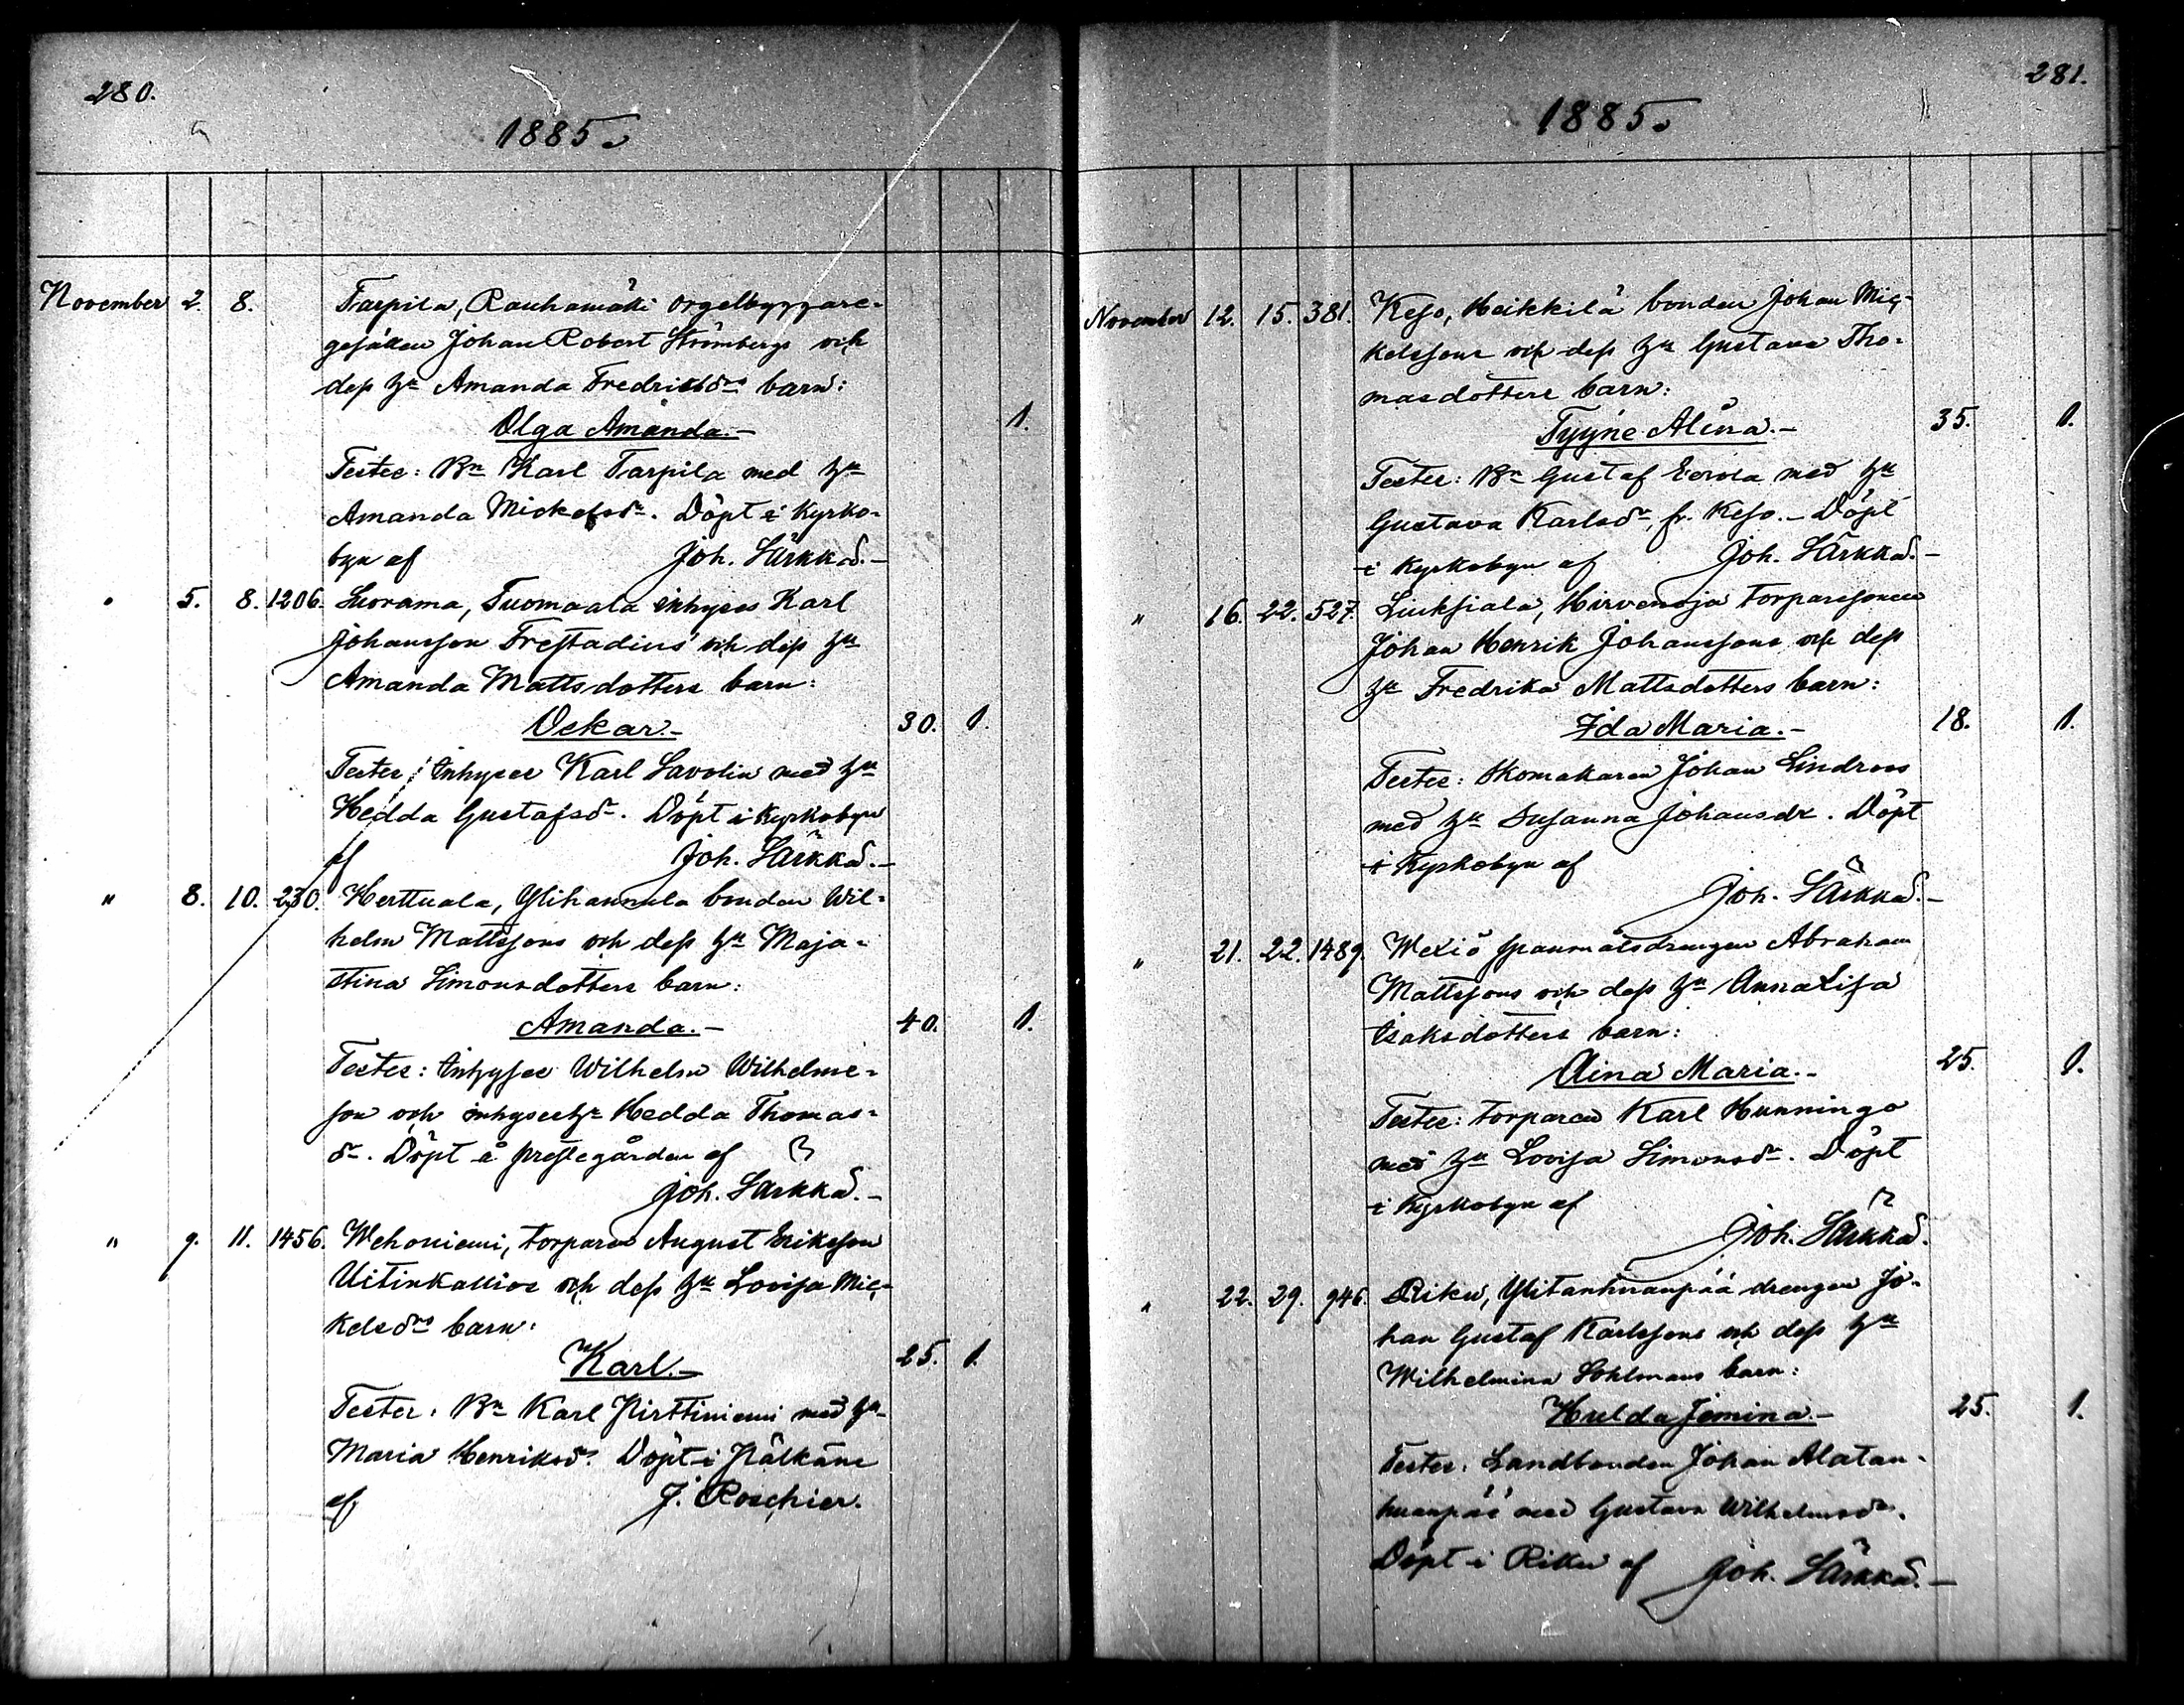 280.
1885.
November 2. 8. Tarpila, Rauhamäki orgelbyggare-
gesällen Johan Robert Strömbergs och
dess hu Amanda Fredriksdrs barn:
Olga Amanda.- 1.
Testes: Bn Karl Tarpila med hu
Amanda Mickelsdr. Döpt i Kyrko-
byn af Joh. Särkkä.-
" 5. 8. 1206. Luorama, Tuomaala inhyses Karl
Johansson Frestadius och dess hu
Amanda Mattsdotters barn:
Oskar.- 30. 1.
Testes: Inhyses Karl Savolin med hu
Hedda Gustafsdr. Döpt i Kyrkobyn
af Joh. Särkkä.-
" 8. 10. 230. Herttuala, Ylihannula bonden Wil-
helm Mattssons och dess hu Maja-
stina Simonsdotters barn:
Amanda.- 40. 1.
Testes: Inhyses Wilhelm Wilhelms-
son och inhyseshu Hedda Thomas-
dr. Döpt å prestegården af
Joh. Särkkä.-
" 9. 11. 1456. Wehoniemi, torparen August Eriksson
Uitinkallios och dess hu Lovisa Mic-
kelsdrs barn:
Karl.- 25. 1.
Testes: Bn Karl Pirttiniemi med hu
Maria Henriksdr. Döpt i Pälkäne
af J. Roschier.
281.
1885.
November 12. 15. 381. Keso, Heikkilä bonden Johan Mic-
kelssons och dess hu Gustava Tho-
masdotters barn:
Tyyne Alina.- 35. 1.
Testes: Bn Gustaf Eerola med hu
Gustava Karlsdr. fr. Keso.- Döpt
i Kyrkobyn af Joh. Särkkä.-
" 16. 22. 527. Liuksiala, Hirvenoja torparesonen
Johan Henrik Johanssons och dess
hu Fredrika Mattsdotters barn:
Ida Maria.- 18. 1.
Testes: Skomakaren Johan Lindroos
med hu Susanna Johansdr. Döpt
i Kyrkobyn af
Joh. Särkkä.-
" 21. 22. 1489. Wexiö spanmålsdrengen Abraham
Mattssons och dess hu Anna Lisa
Isaksdotters barn:
Aina Maria.- 25. 1.
Testes: torparen Karl Hunningo
med hu Lovisa Simonsdr. Döpt
i Kyrkobyn af
Joh. Särkkä.
" 22. 29. 946. Riku, Ylitanhuanpää drengen Jo-
han Gustaf Karlssons och dess hu
Wilhelmina Sohlmans barn:
Hulda Jemina.- 25. 1.
Testes: Landbonden Johan Alatan-
huanpää med Gustava Wilhelmsdr.
Döpt i Riku af Joh. Särkkä.-